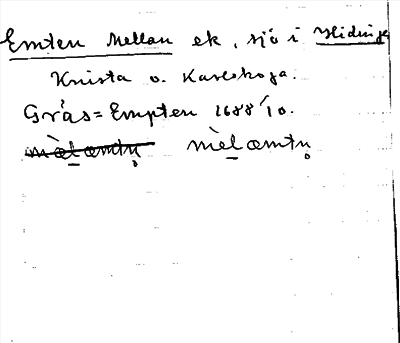 Emten Mellan ek, sjö i Hidinge
Knista o. Karlskoga.
Gräs=Empten 1688 1/10.
mèlæmtn̥ mèlæmtn̥